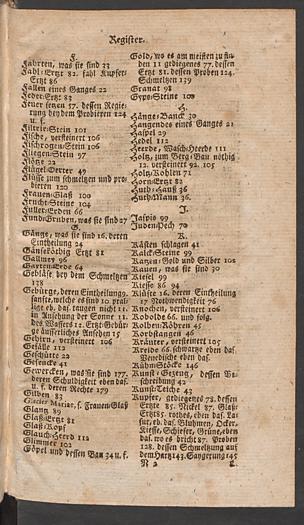 Register.
F.
Fahrten, was sie sind 23
Fahl-Ertzt 82. fahl Kupfer-
Ertzt 86
Fallen eines Ganges 22
Feder-Ertzt 83
Feuer setzen 57. dessen Regie-
rung bey dem Probieren 124
u. f.
Filtrir-Stein 101
Fische, versteinert 106
Fischrogen-Stein 106
Fliegen-Stein 97
Flötze 22
Flügel-Oerter 49
Flüsse zum schmeltzen und pro-
bieren 120
Frauen-Glaß 100
Frucht-Steine 104
Fuller-Erden 66
Fund-Gruben, was sie sind 27
G.
Gänge, was sie sind 16. deren
Eintheilung 24
Gänseköthig Ertzt 81
Gallmey 96
Garten-Erde 64
Gebläse bey dem Schmeltzen
138
Gebürge, deren Eintheilung 9.
sanfte, welche es sind 10. pral-
lige eb. das. taugen nicht 11.
in Ansehung der Sonne 11.
des Wassers 12. Ertzt-Gebür-
ge äusserliches Ansehen 15
Gehirn, versteinert 106
Gefälle 112
Geschütte 22
Gesencke 41
Gewercken, was sie sind 177.
deren Schuldigkeit eben das.
u. f. deren Rechte 179
Gilben 83
Glacies Mariæ, s. Frauen-Glaß
Glantz 89
Glaß-Ertzt 81
Glaß-Kopf
Glauch-Heerd 112
Glimmer 102
Göpel und dessen Bau 34 u. f.
Gold, wo es am meisten zu fin-
den 11 gediegenes 77. dessen
Ertzt 81. dessen Proben 124.
Schmeltzen 139
Granat 98
Gyps-Steine 100
H.
Hänge-Banck 30
Hangendes eines Ganges 21
Haspel 29
Hedel 112
Heerde, Wasch-Heerde 111
Holtz, zum Berg-Bau nöthig
12. versteinert 92. 105
Holtz-Kohlen 71
Horn-Ertzt 82
Huth-Hauß 36
Huth-Mann 36.
J.
Jaspis 99
Juden-Pech 70
K.
Kästen schlagen 41
Kalck-Steine 99
Katzen-Gold und Silber 102
Kauen, was sie sind 30
Kiesel 99
Kiese 86 94
Klüfte 16. deren Eintheilung
17 Nothwendigkeit 76
Knochen, versteinert 106
Kobolde 66. und folg.
Kolben-Röhren 45
Korbstangen 46
Kräuter, versteinert 105
Kreide 66. schwartze eben das.
Venedische eben das.
Kühn-Stöcke 146
Kunst-Gezeug, dessen Be-
schreibung 42
Kunst-Teiche 43
Kupfer, gediegenes 78. dessen
Ertzte 85. Nickel 87. Glaß-
Ertzt 85. rothes, eben das. La-
sur, eb. das. Bluhmen, Ocker,
Kiesse, Schiefer, Grüne, eben
das. wo es bricht 87. Proben
128. dessen Schmeltzung auf
dem Hartz 143. Saygerung 145
N 2
L.